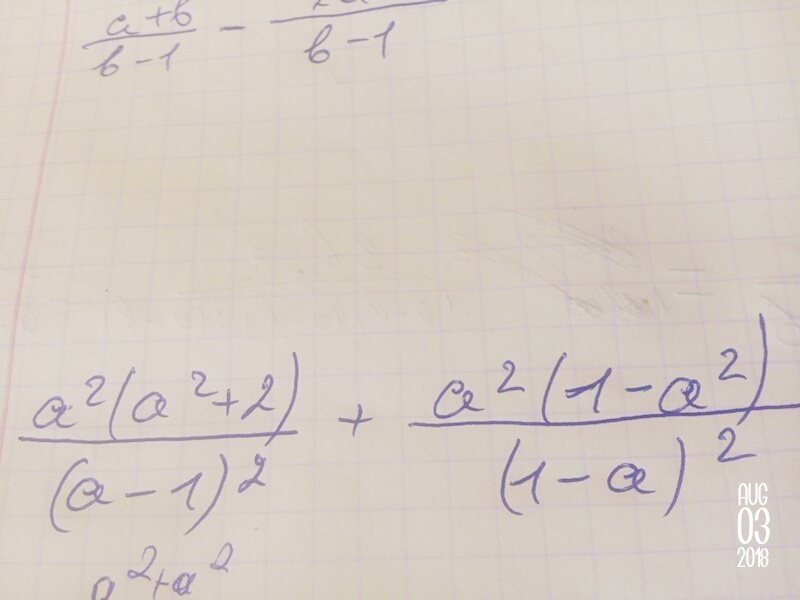 a+b / b-1 -  / b-1
a²(a²+2) / (a-1)² + a²(1-a²) / (1-a)²
a²+a²
AUG
03
2018